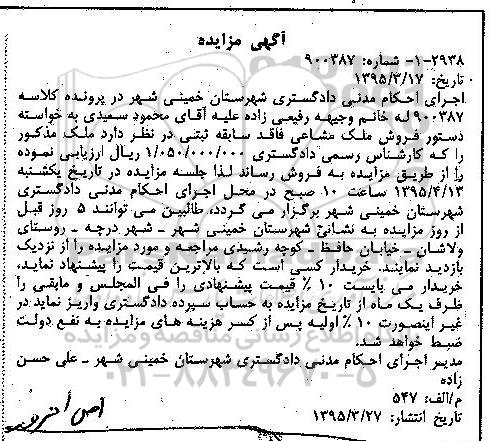 آگهی مزایده
۱-۲۹۳۸- شماره: ۹۰۰۳۸۷
تاریخ: ۱۳۹۵/۳/۱۷
اجرای احکام مدنی دادگستری شهرستان خمینی شهر در پرونده کلاسه
۹۰۰۳۸۷ له خانم وجیهه رفیعی زاده علیه آقای محمود سعیدی به خواسته
دستور فروش ملک مشاعی فاقد سابقه ثبتی در نظر دارد ملک مذکور
را که کارشناس رسمی دادگستری ۱/۰۵۰/۰۰۰/۰۰۰ ریال ارزیابی نموده
را از طریق مزایده به فروش رساند لذا جلسه مزایده در تاریخ یکشنبه
۱۳۹۵/۴/۱۳ ساعت ۱۰ صبح در محل اجرای احکام مدنی دادگستری
شهرستان خمینی شهر برگزار می گردد، طالبین می توانند ۵ روز قبل
از روز مزایده به نشانی شهرستان خمینی شهر ـ شهر درچه ـ روستای
ولاشان ـ خیابان حافظ ـ کوچه رشیدی مراجعه و مورد مزایده را از نزدیک
بازدید نمایند. خریدار کسی است که بالاترین قیمت را پیشنهاد نماید،
خریدار می بایست ۱۰ ٪ قیمت پیشنهادی را فی المجلس و مابقی را
ظرف یک ماه از تاریخ مزایده به حساب سپرده دادگستری واریز نماید در
غیر اینصورت ۱۰ ٪ اولیه پس از کسر هزینه های مزایده به نفع دولت
ضبط خواهد شد.
مدیر اجرای احکام مدنی دادگستری شهرستان خمینی شهر ـ علی حسن
زاده
م/الف: ۵۴۷
تاریخ انتشار: ۱۳۹۵/۳/۲۷
۰۲۱-۸۸۳۴۹۶۷۰-۵